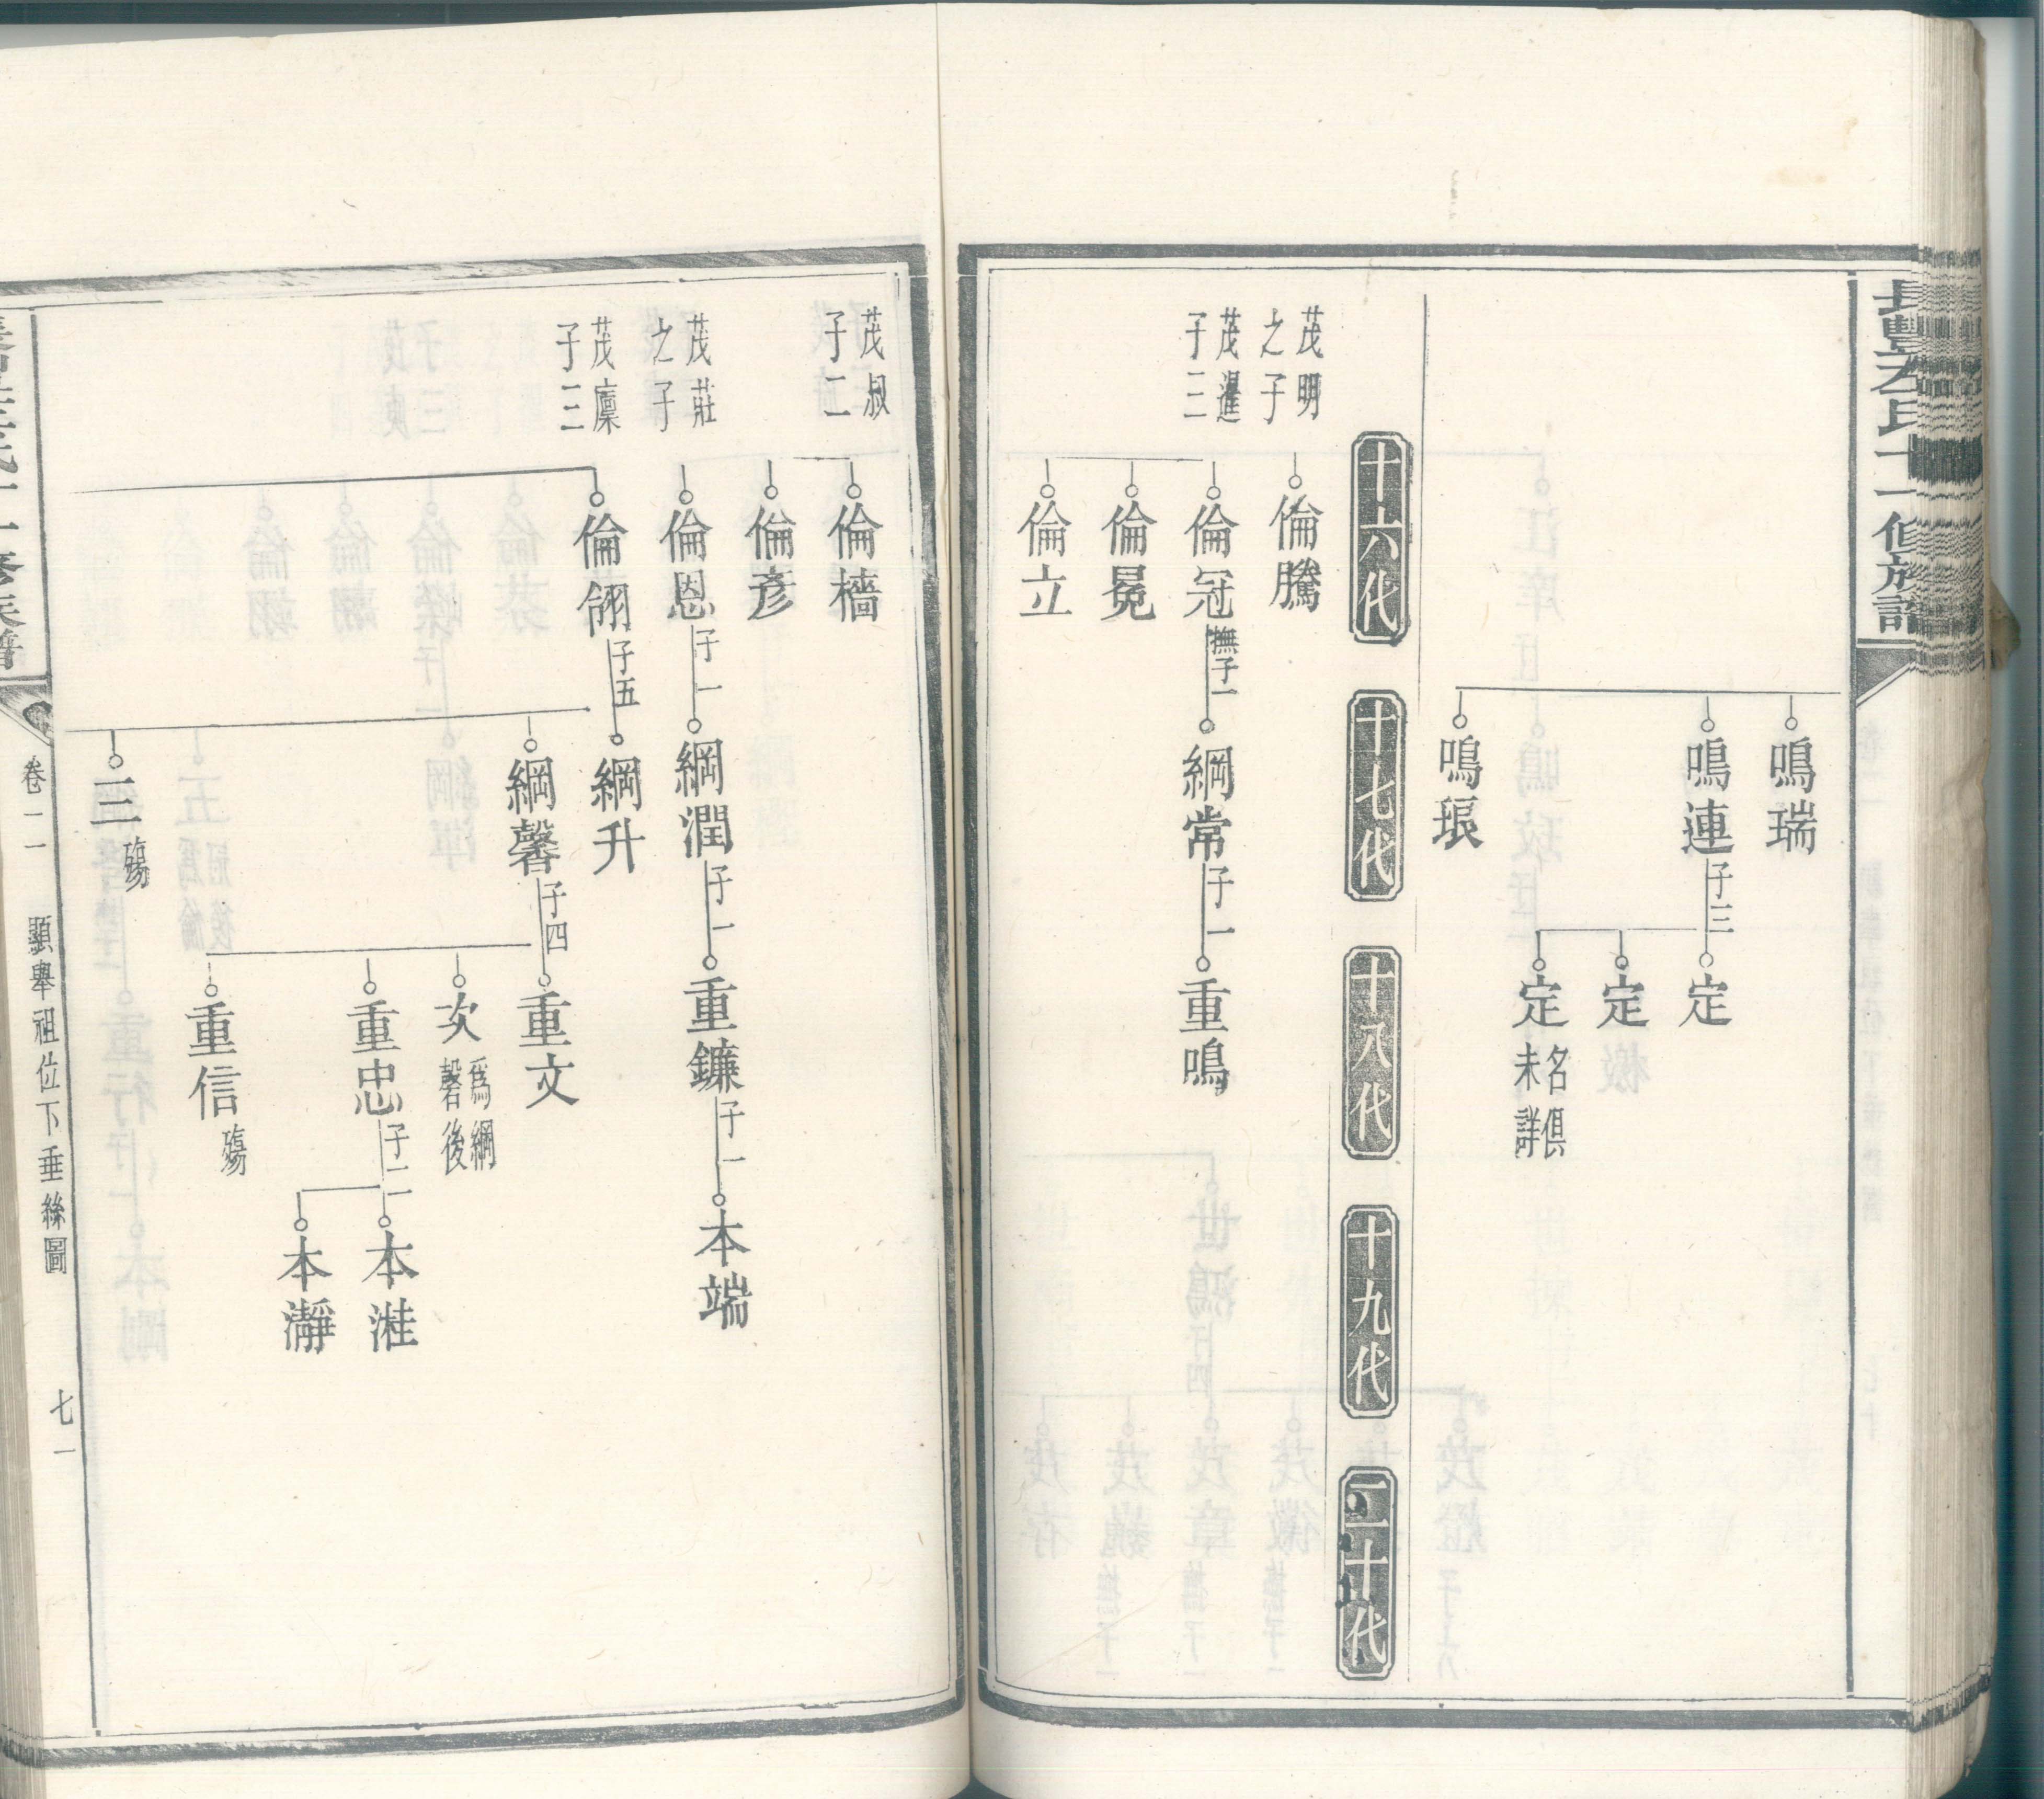 鳴瑞
鳴連
子三
定
定
定
名俱
未詳
鳴琅
十六代
十七代
十八代
十九代
二十代
茂明
之子
倫騰
茂暹
子三
倫冠
撫子一
綱常
子一
重鳴
倫冕
倫立
茂叔
子二
倫檣
倫彥
茂莊
之子
倫恩
子一
綱潤
子一
重鐮
子一
本端
茂廩
子三
倫翎
子五
綱升
綱馨
子四
重文
次
為綱
馨後
重忠
子二
本溎
本瀞
重信
殤
三
殤
卷二
顯舉祖位下垂絲圖
七一